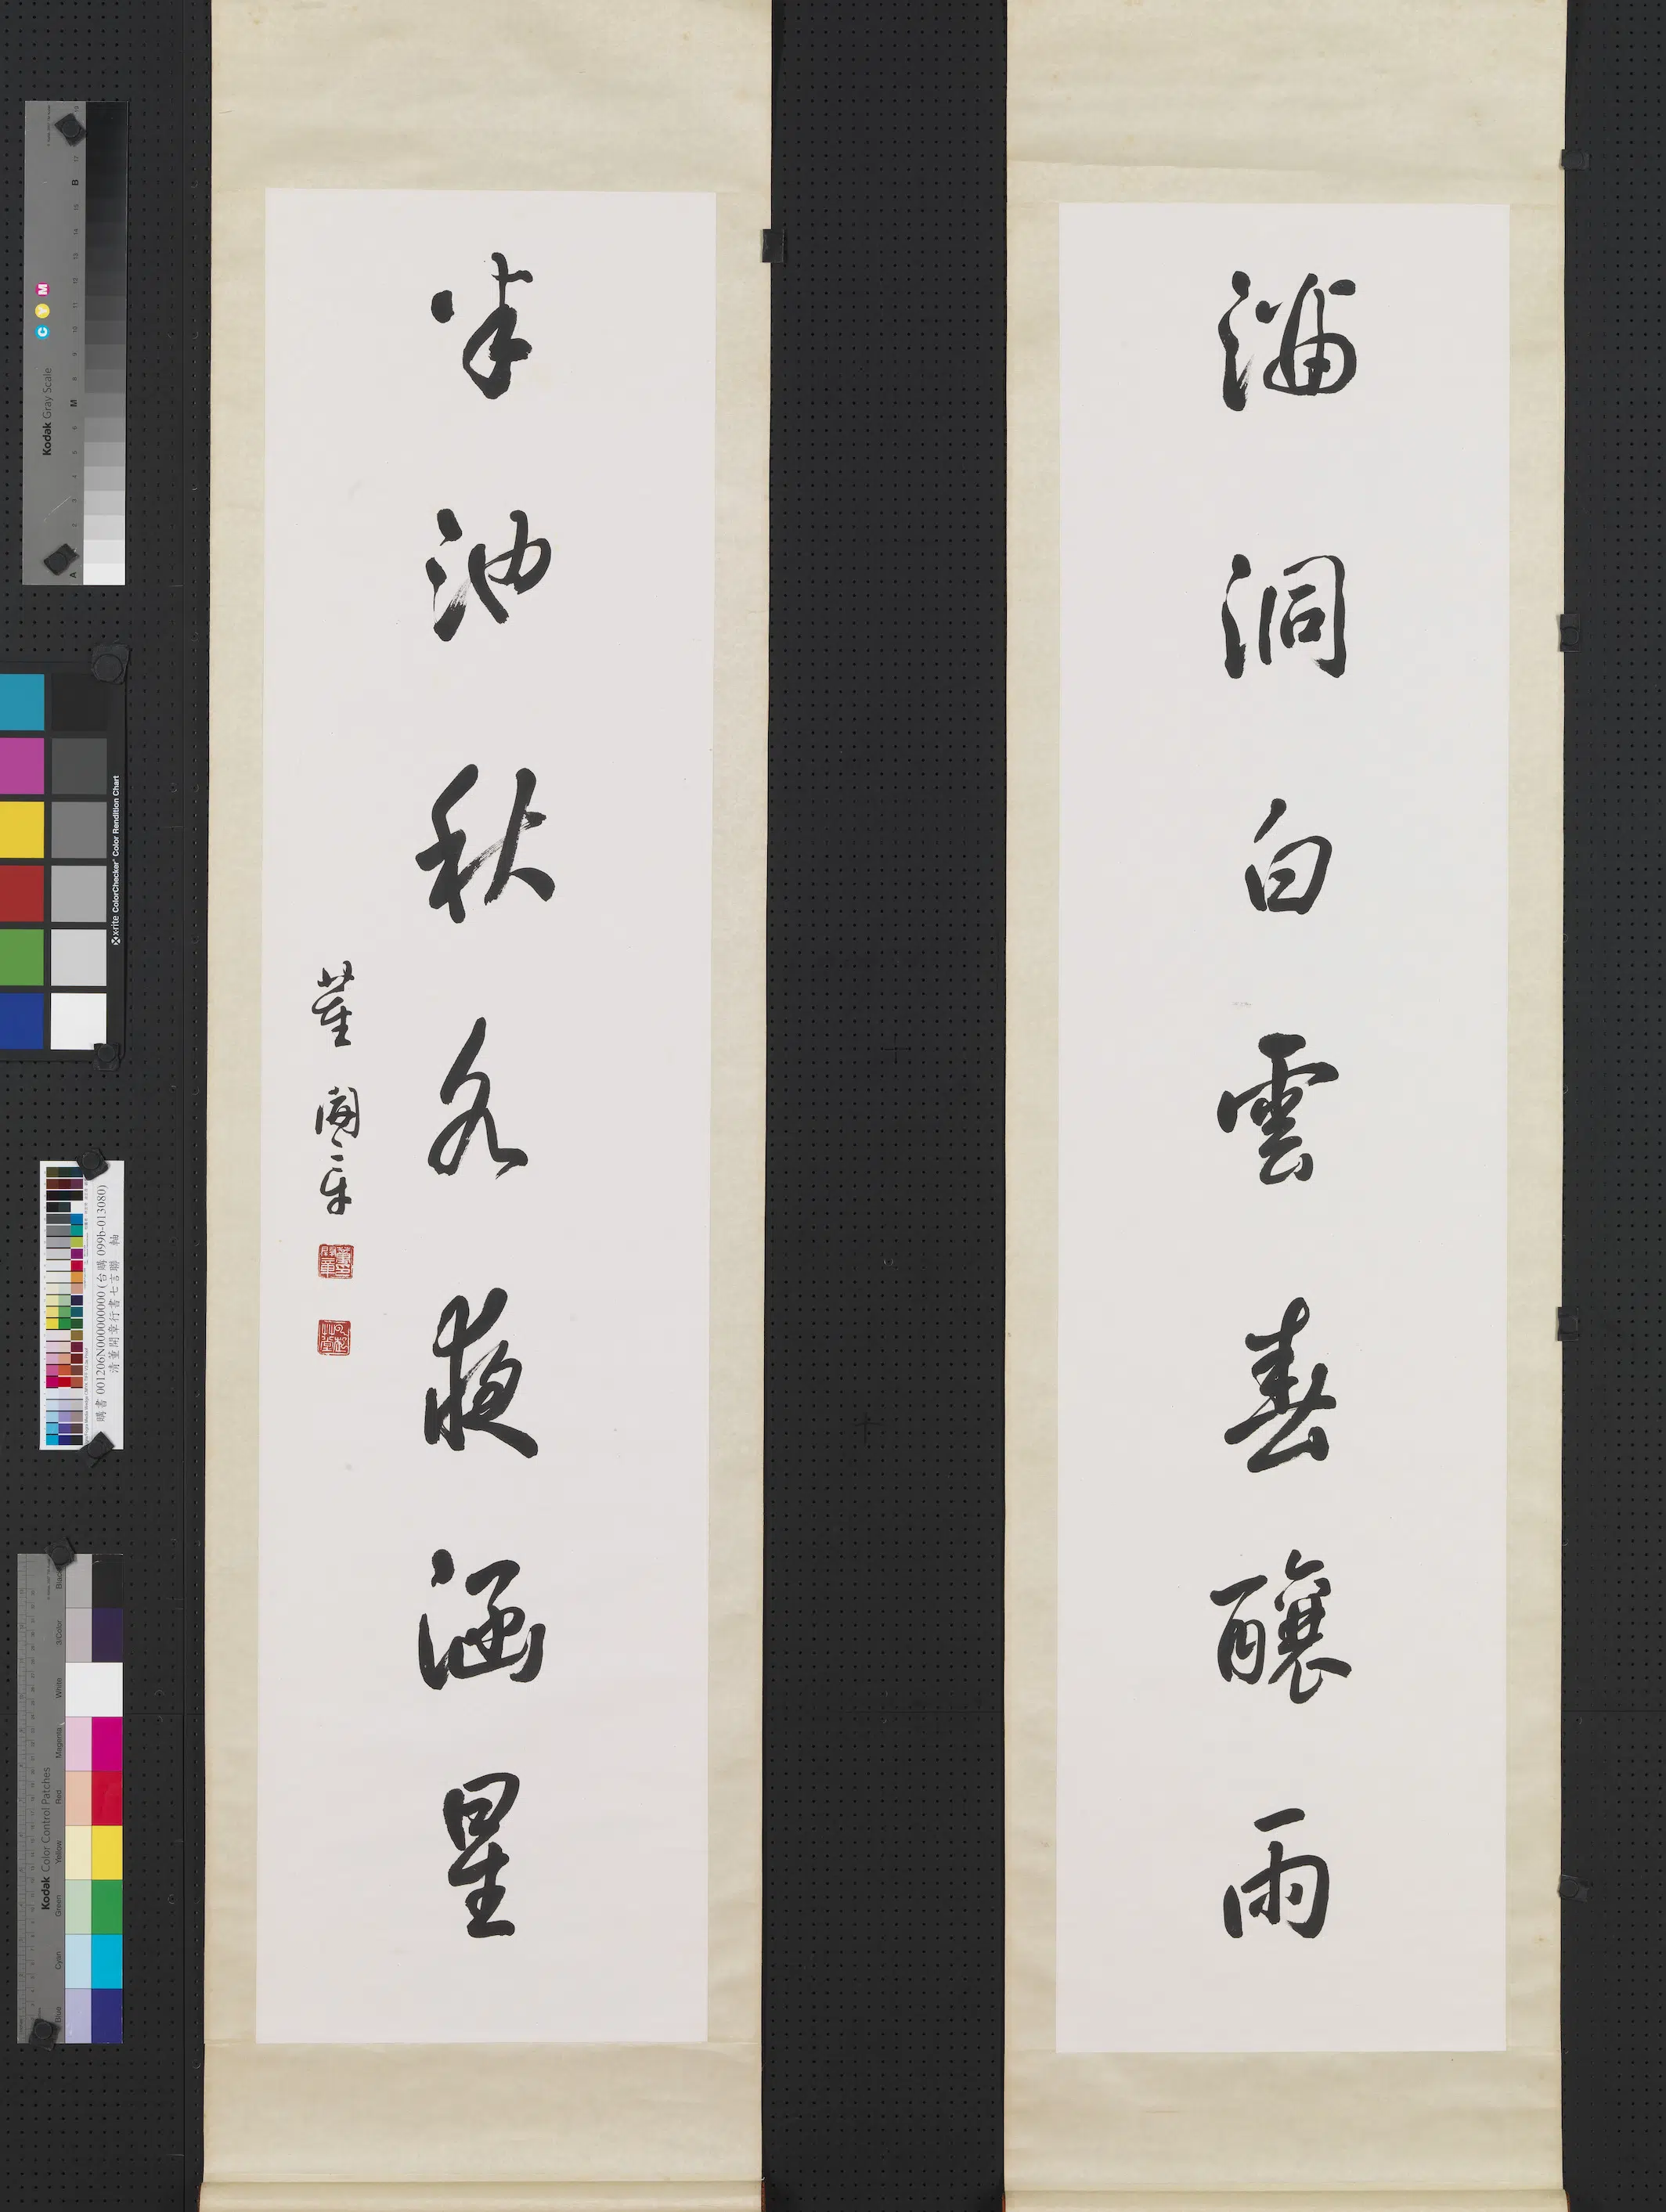 滿洞白雲春釀雨
半池秋水夜涵星
董開章
Kodak Gray Scale
C Y M
A
M
B
x-rite ColorChecker Color Rendition Chart
購書 001206N000000000 (台購 099b-013080)
清董開章行書七言聯 軸
Kodak Color Control Patches
Blue Cyan Green Yellow Red Magenta White 3/Color Black